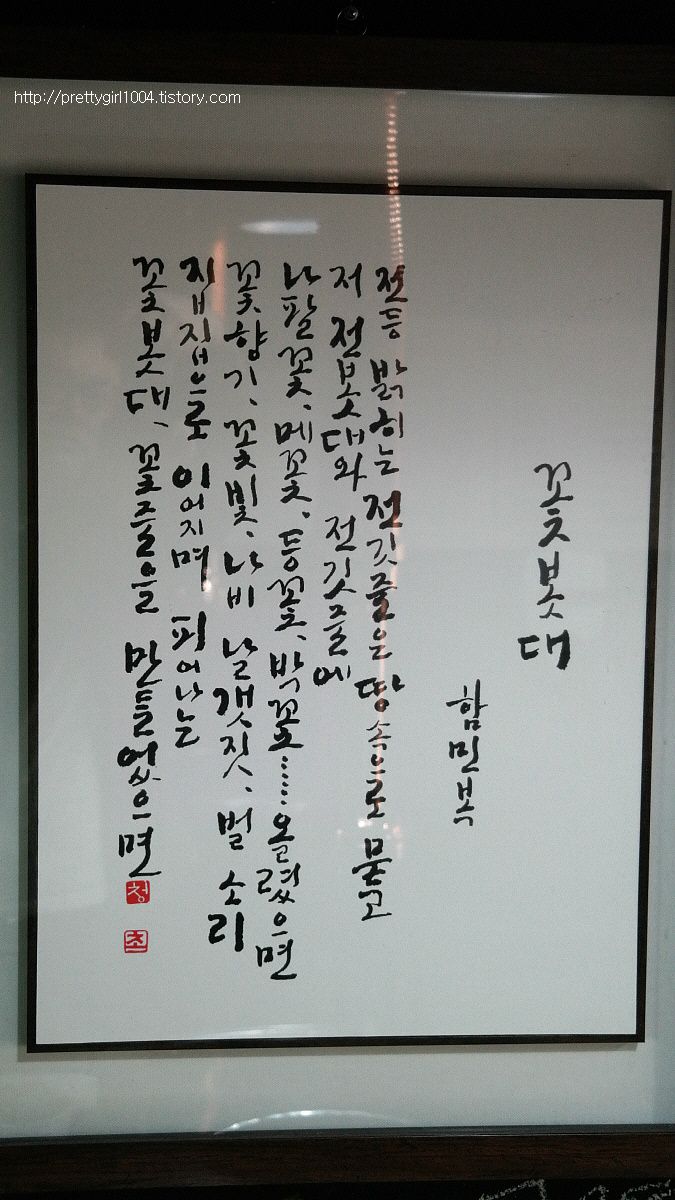 http://prettygirl1004.tistory.com
꽃봇대
함민복
전등 밝히는 전깃줄은 땅속으로 묻고
저 전봇대와 전깃줄에
나팔꽃, 메꽃, 등꽃, 박꽃…… 올렸으면
꽃향기, 꽃빛, 나비 날갯짓, 벌 소리
집집으로 이어지며 피어나는
꽃봇대, 꽃줄을 만들었으면
청
초